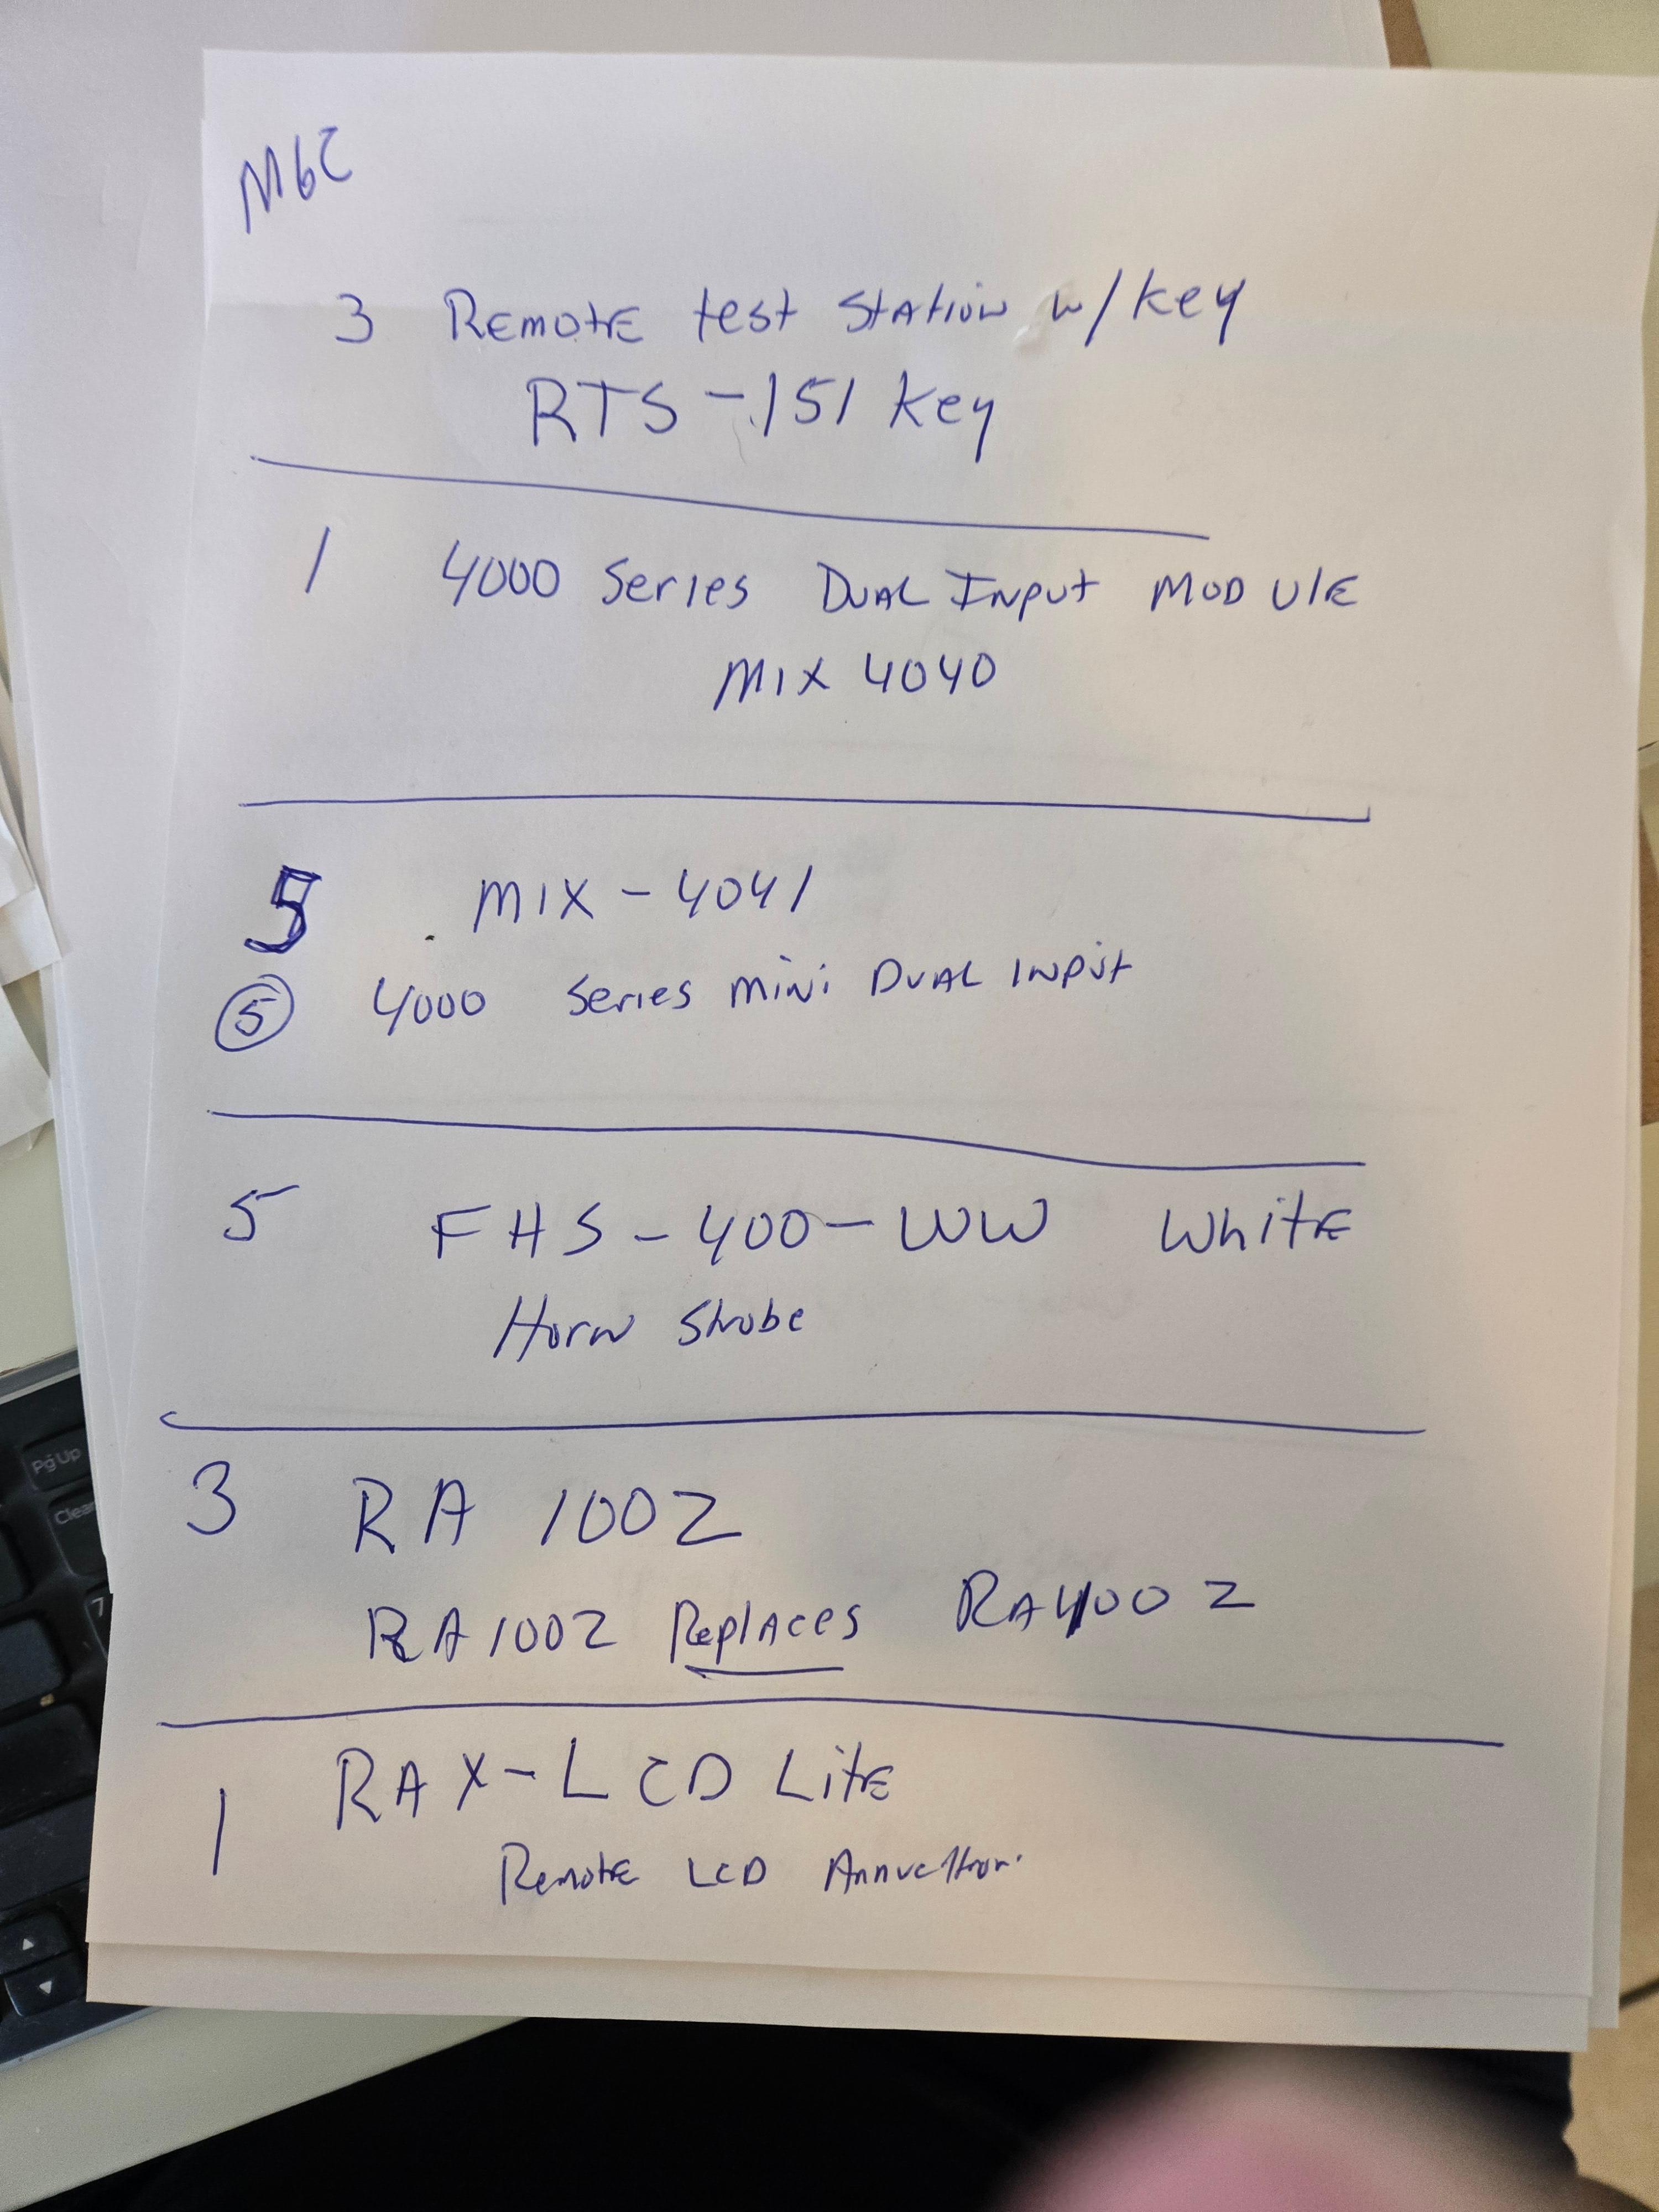 MGC
3 Remote test Station w/key
RTS-151 key
1 4000 Series Dual Input Module
Mix 4040
5 MIX-4041
5 4000 Series mini Dual Input
5 FHS-400-WW White
Horn Strobe
3 RA 100Z
RA100Z Replaces RA400Z
1 RAX-LCD Lite
Remote LCD
Pg Up
Clear
7